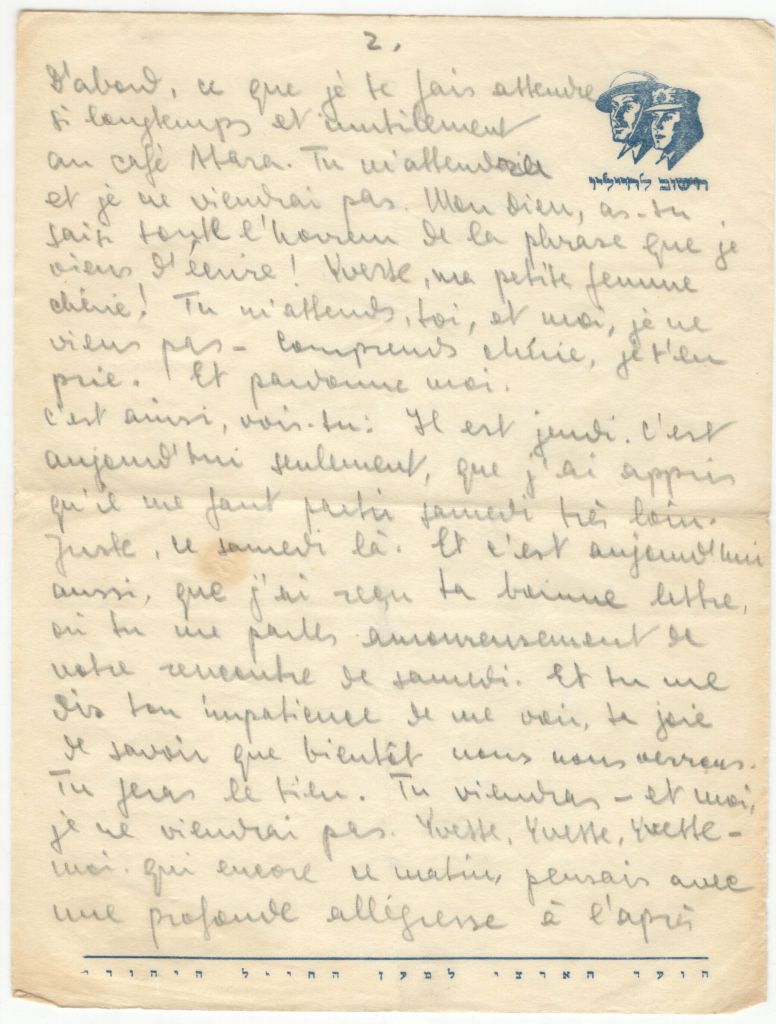 2.
D'abord, ce que je te fais attendre
si longtemps et inutilement
au café Atara. Tu m'attendras
חישוב לחיילינו
et je ne viendrai pas. Mon Dieu, as-tu
saisi toute l'horreur de la phrase que je
viens d'écrire! Yvette, ma petite femme
chérie! Tu m'attends, toi, et moi, je ne
viens pas - Comprends chérie, je t'en
prie. Et pardonne moi.
C'est ainsi, vois-tu: Il est jeudi. C'est
aujourd'hui seulement, que j'ai appris
qu'il me faut partir samedi très loin.
Juste, ce samedi là. Et c'est aujourd'hui
aussi, que j'ai reçu ta bonne lettre,
où tu me parles amoureusement de
notre rencontre de samedi. Et tu me
dis ton impatience de me voir, ta joie
de savoir que bientôt nous nous verrons.
Tu feras le tien. Tu viendras - et moi,
je ne viendrai pas. Yvette, Yvette, Yvette -
moi qui encore ce matin, pensais avec
une profonde allégresse à l'après
הועד הארצי למען החייל היהודי